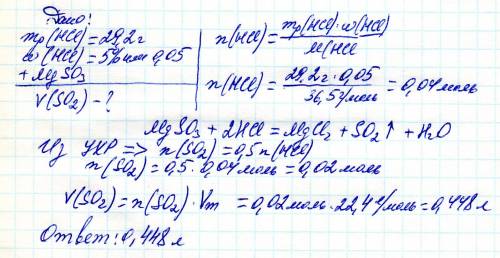 Дано:
mр(HCl)=29,2г
w(HCl)=5% или 0,05
+MgSO3
V(SO2)-?
n(HCl)=mр(HCl)·w(HCl)/M(HCl
n(HCl)=29,2г·0,05/36,5г/моль=0,04моль
MgSO3+2HCl=MgCl2+SO2↑+H2O
Из УХР => n(SO2)=0,5n(HCl)
n(SO2)=0,5·0,04моль=0,02моль
V(SO2)=n(SO2)·Vm=0,02моль·22,4л/моль=0,448л
Ответ:0,448л